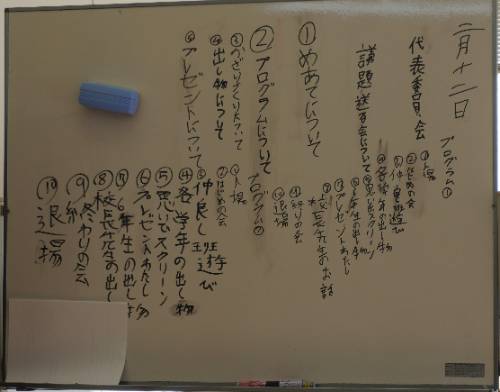 二月十二日
代表委員会
議題送る会について
①めあてについて
②プログラムについて
③かざりつけについて
④出し物について
⑤プレゼントについて
プログラム①
①入場
②はじめの会
③仲良し班遊び
④各学年の出し物
⑤思い出スクリーン
⑥6年生の出し物
⑦プレゼントわたし
⑧校長先生のお話
⑨終りの会
⑩退場
プログラム②
①入場
②はじめの会
③仲良し班遊び
④各学年の出し物
⑤思い出スクリーン
⑥プレゼントわたし
⑦6年生の出し物
⑧校長先生の
⑨終わりの会
⑩退場